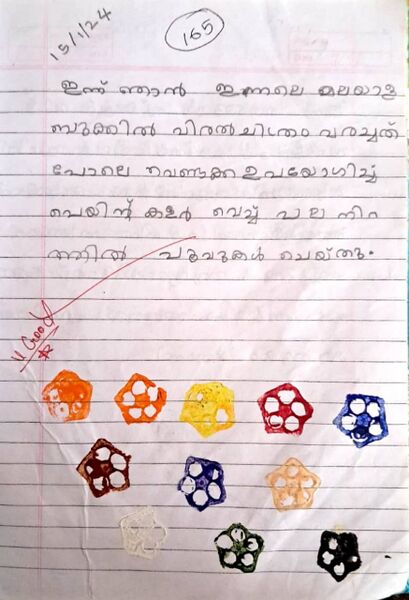 15/1/24
165
ഇന്ന് ഞാൻ ഇന്നലെ മലയാള
ബുക്കിൽ വിരൽ ചിത്രം വരച്ചത്
പോലെ വെണ്ടക്ക ഉപയോഗിച്ച്
പെയിന്റ് കളർ വെച്ച് പല നിറ
ത്തിൽ പൂവുകൾ ചെയ്തു.
V. Good